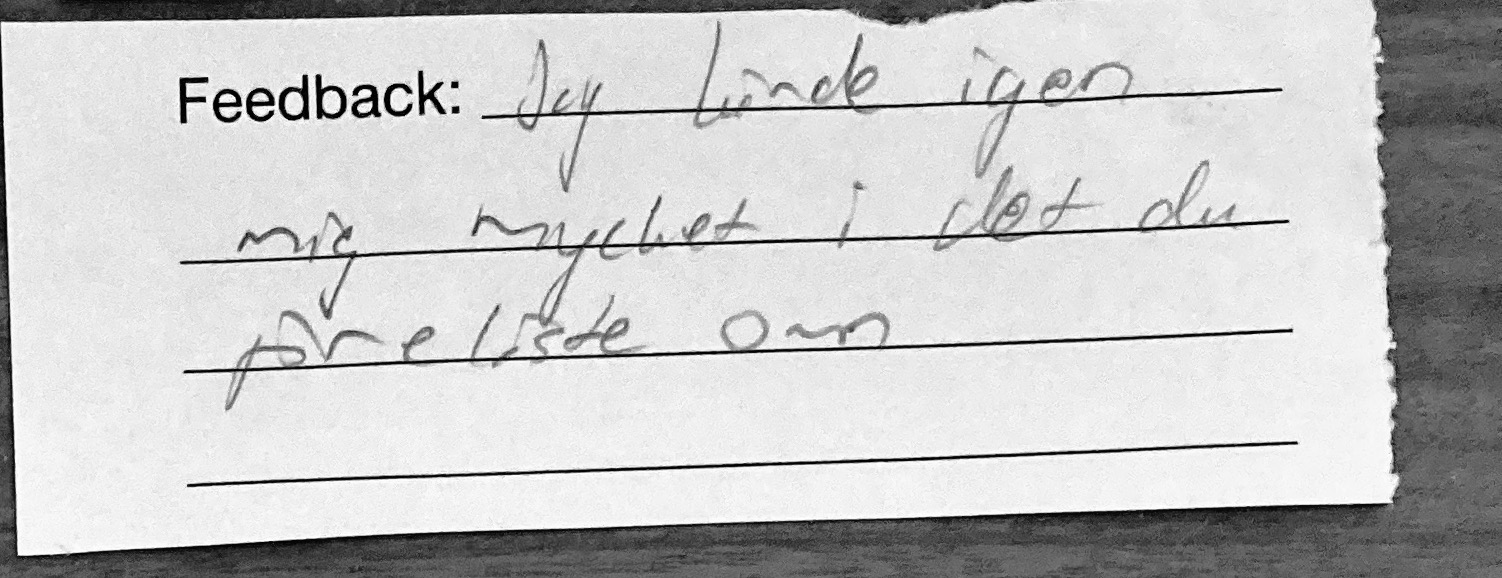 Feedback: Jag kände igen
mig mycket i det du
föreläste om